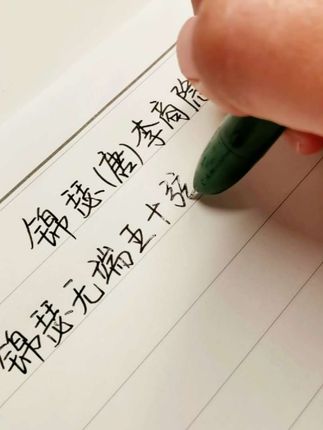 锦瑟(唐)李商隐
锦瑟无端五十弦